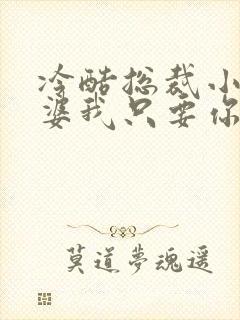 冷酷总裁小
婆我只要你
莫道夢魂遥